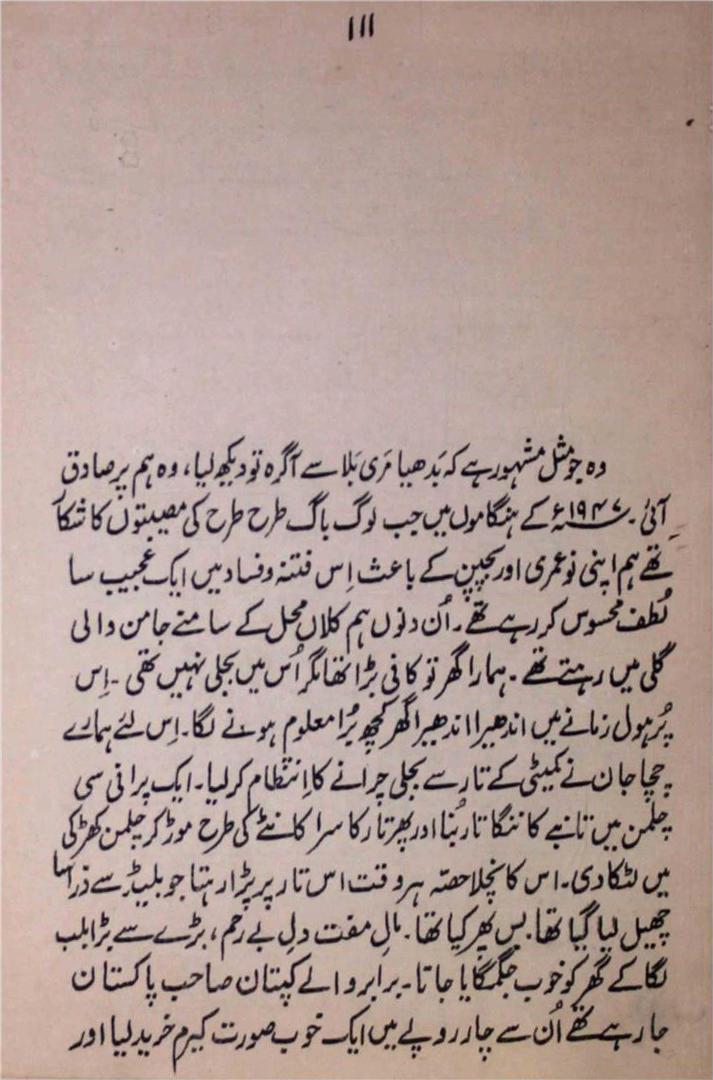 ۱۱۱
وہ جو مثل مشہور ہے کہ بَدھیا مَری بَلا سے آگرہ تو دیکھ لیا، وہ ہم پر صادق
آئی۔ ۱۹۴۷ء کے ہنگاموں میں جب لوگ باگ طرح طرح کی مصیبتوں کا شکار
تھے ہم اپنی نوعمری اور بچپن کے باعث اِس فتنہ و فساد میں ایک عجیب سا
لُطف محسوس کر رہے تھے۔ اُن دنوں ہم کلاں محل کے سامنے جامن والی
گلی میں رہتے تھے۔ ہمارا گھر تو کافی بڑا تھا مگر اُس میں بجلی نہیں تھی۔ اِس
پُرہول زمانے میں اندھیرا اندھیرا گھر کچھ بُرا معلوم ہونے لگا۔ اِس لئے ہمارے
چچا جان نے کمیٹی کے تار سے بجلی چرانے کا اِنتظام کر لیا۔ ایک پرانی سی
چلمن میں تانبے کا ننگا تار بُنا اور پھر تار کا سرا کانٹے کی طرح موڑ کر چلمن کھڑکی
میں لٹکا دی۔ اس کا نچلا حصّہ ہر وقت اس تار پر پڑا رہتا جو بلیڈ سے ذرا سا
چھیل لیا گیا تھا۔ بس پھر کیا تھا۔ مالِ مفت دلِ بے رحم، بڑے سے بڑا بلب
لگا کے گھر کو خوب جگمگایا جاتا۔ برابر والے کپتان صاحب پاکستان
جا رہے تھے اُن سے چار روپے میں ایک خوب صورت کیرم خرید لیا اور